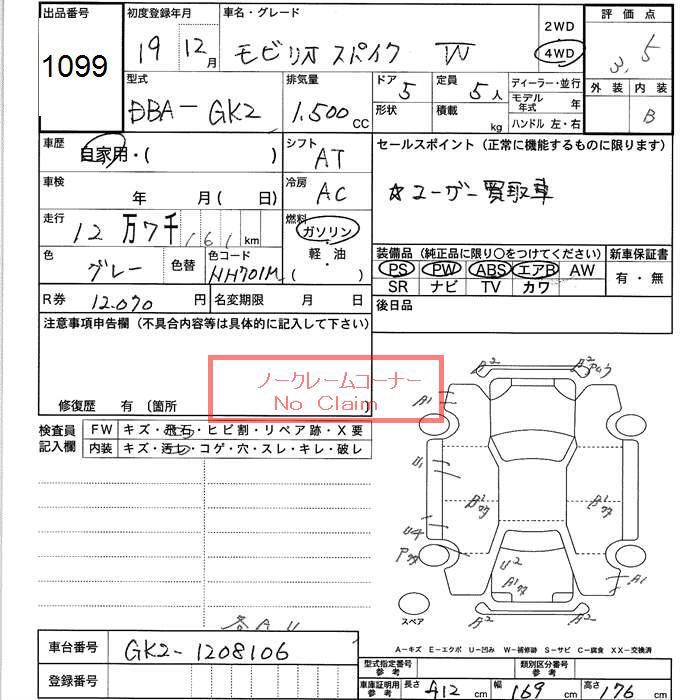 出品番号
1099
初度登録年月
19 12月
車名・グレード
モビリオ スパイク W
2WD
4WD
評価点
3.5
外装 内装
B
型式
DBA-GK2
排気量
1.500cc
ドア 5
形状
定員 5人
積載 kg
ディーラー・並行
モデル年式 年
ハンドル 左・右
車歴
自家用・( )
シフト
AT
セールスポイント(正常に機能するものに限ります)
☆ユーザー買取車
車検
年 月( 日)
冷房
AC
走行
12万7千161km
燃料
ガソリン
軽・油
( )
色
グレー
色替
色コード
NH701M
装備品(純正品に限り○をつけてください)
PS PW ABS エアB AW
SR ナビ TV カワ
新車保証書
有・無
R券 12.070円
名変期限 月 日
後日品
注意事項申告欄(不具合内容等は具体的に記入して下さい)
ノークレームコーナー
No Claim
修復歴 有〔箇所 〕
検査員記入欄
FW キズ・飛石・ヒビ割・リペア跡・X要
内装 キズ・汚レ・コゲ・穴・スレ・キレ・破レ
各A.U
B2
B2
A1
U1
U4
B1
B1
U2
A1
A1
B2
B2
スペア
A-キズ E-エクボ U-凹み W-補修跡 S-サビ C-腐食 XX-交換済
車台番号
GK2-1208106
登録番号
型式指定番号 参考
類別区分番号 参考
車庫証明用 参考
長さ 412cm 幅 169cm 高さ 176cm